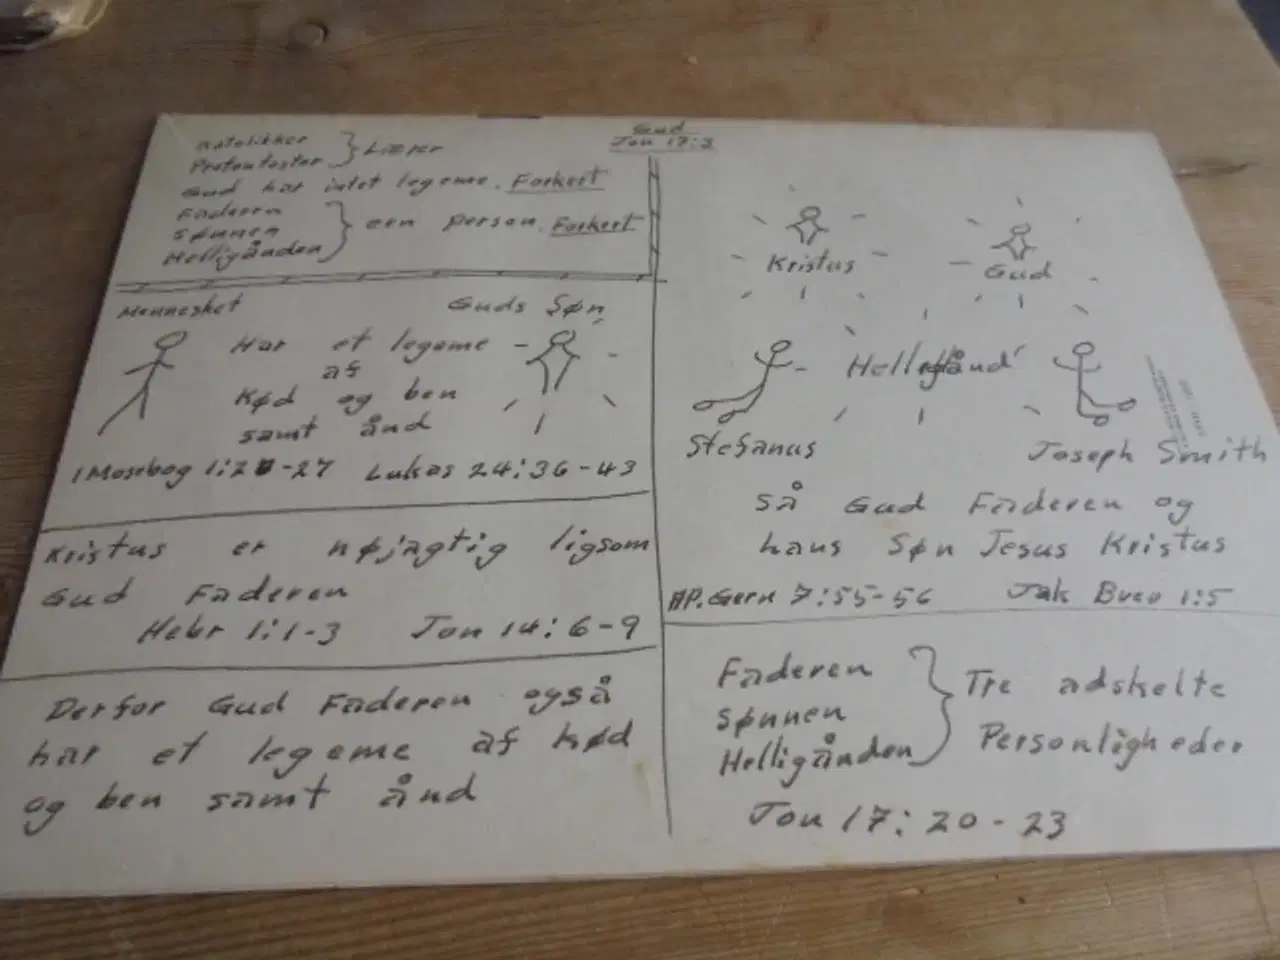 Gud
Jon 17:3
Katolikker
Protestanter } Lærer
Gud har intet legeme. Forkert
Faderen
Sønnen } een person. Forkert
Helligånden
Mennesket Guds Søn
Har et legeme
af
Kød og ben
samt ånd
1 Mosebog 1:26-27 Lukas 24:36-43
Kristus er nøjagtig ligsom
Gud Faderen
Hebr 1:1-3 Jon 14:6-9
Derfor Gud Faderen også
har et legeme af kød
og ben samt ånd
Kristus Gud
Helligånd
Stefanus Joseph Smith
så Gud Faderen og
hans Søn Jesus Kristus
AP. Gern 7:55-56 Jak Brev 1:5
Faderen
Sønnen } Tre adskelte
Helligånden Personligheder
Jon 17:20-23